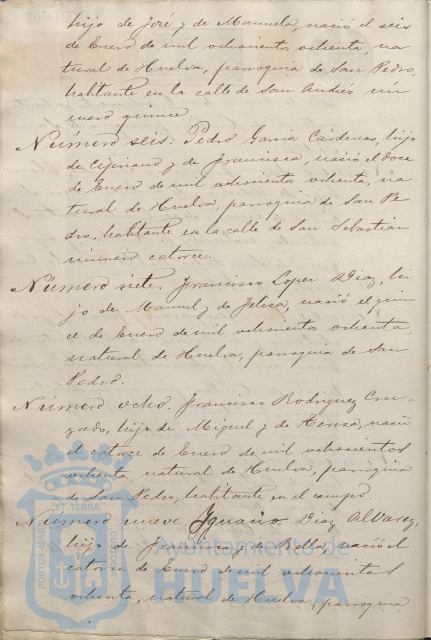 hijo de José y de Manuela, nació el seis
de Enero de mil ochosientos ochenta, na
tural de Huelva, parroquia de San Pedro,
habitante en la calle de San Andrés nú
mero quince
Número seis. Pedro Garcia Cárdenas, hijo
de Cipriano y de Francisca, nació el doce
de Enero de mil ochosientos ochenta, na
tural de Huelva, parroquia de San Pe
dro, habitante en la calle de San Sebastian
número catorce.
Número siete. Francisco Lopez Diaz, hi
jo de Manuel y de Felisa, nació el quin
ce de Enero de mil ochosientos ochenta,
natural de Huelva, parroquia de San
Pedro.
Número ocho. Francisco Rodriguez Cru-
zado, hijo de Miguel y de Teresa, nació
el catorze de Enero de mil ochosientos
ochenta, natural de Huelva, parroquia
de San Pedro, habitante en el campo.
Número nueve Ignacio Diaz Alvarez,
hijo de Francisco y de Bella, nació el
catorce de Enero de mil ochosientos
ochenta, natural de Huelva, parroquia
Ayuntamiento de
HUELVA